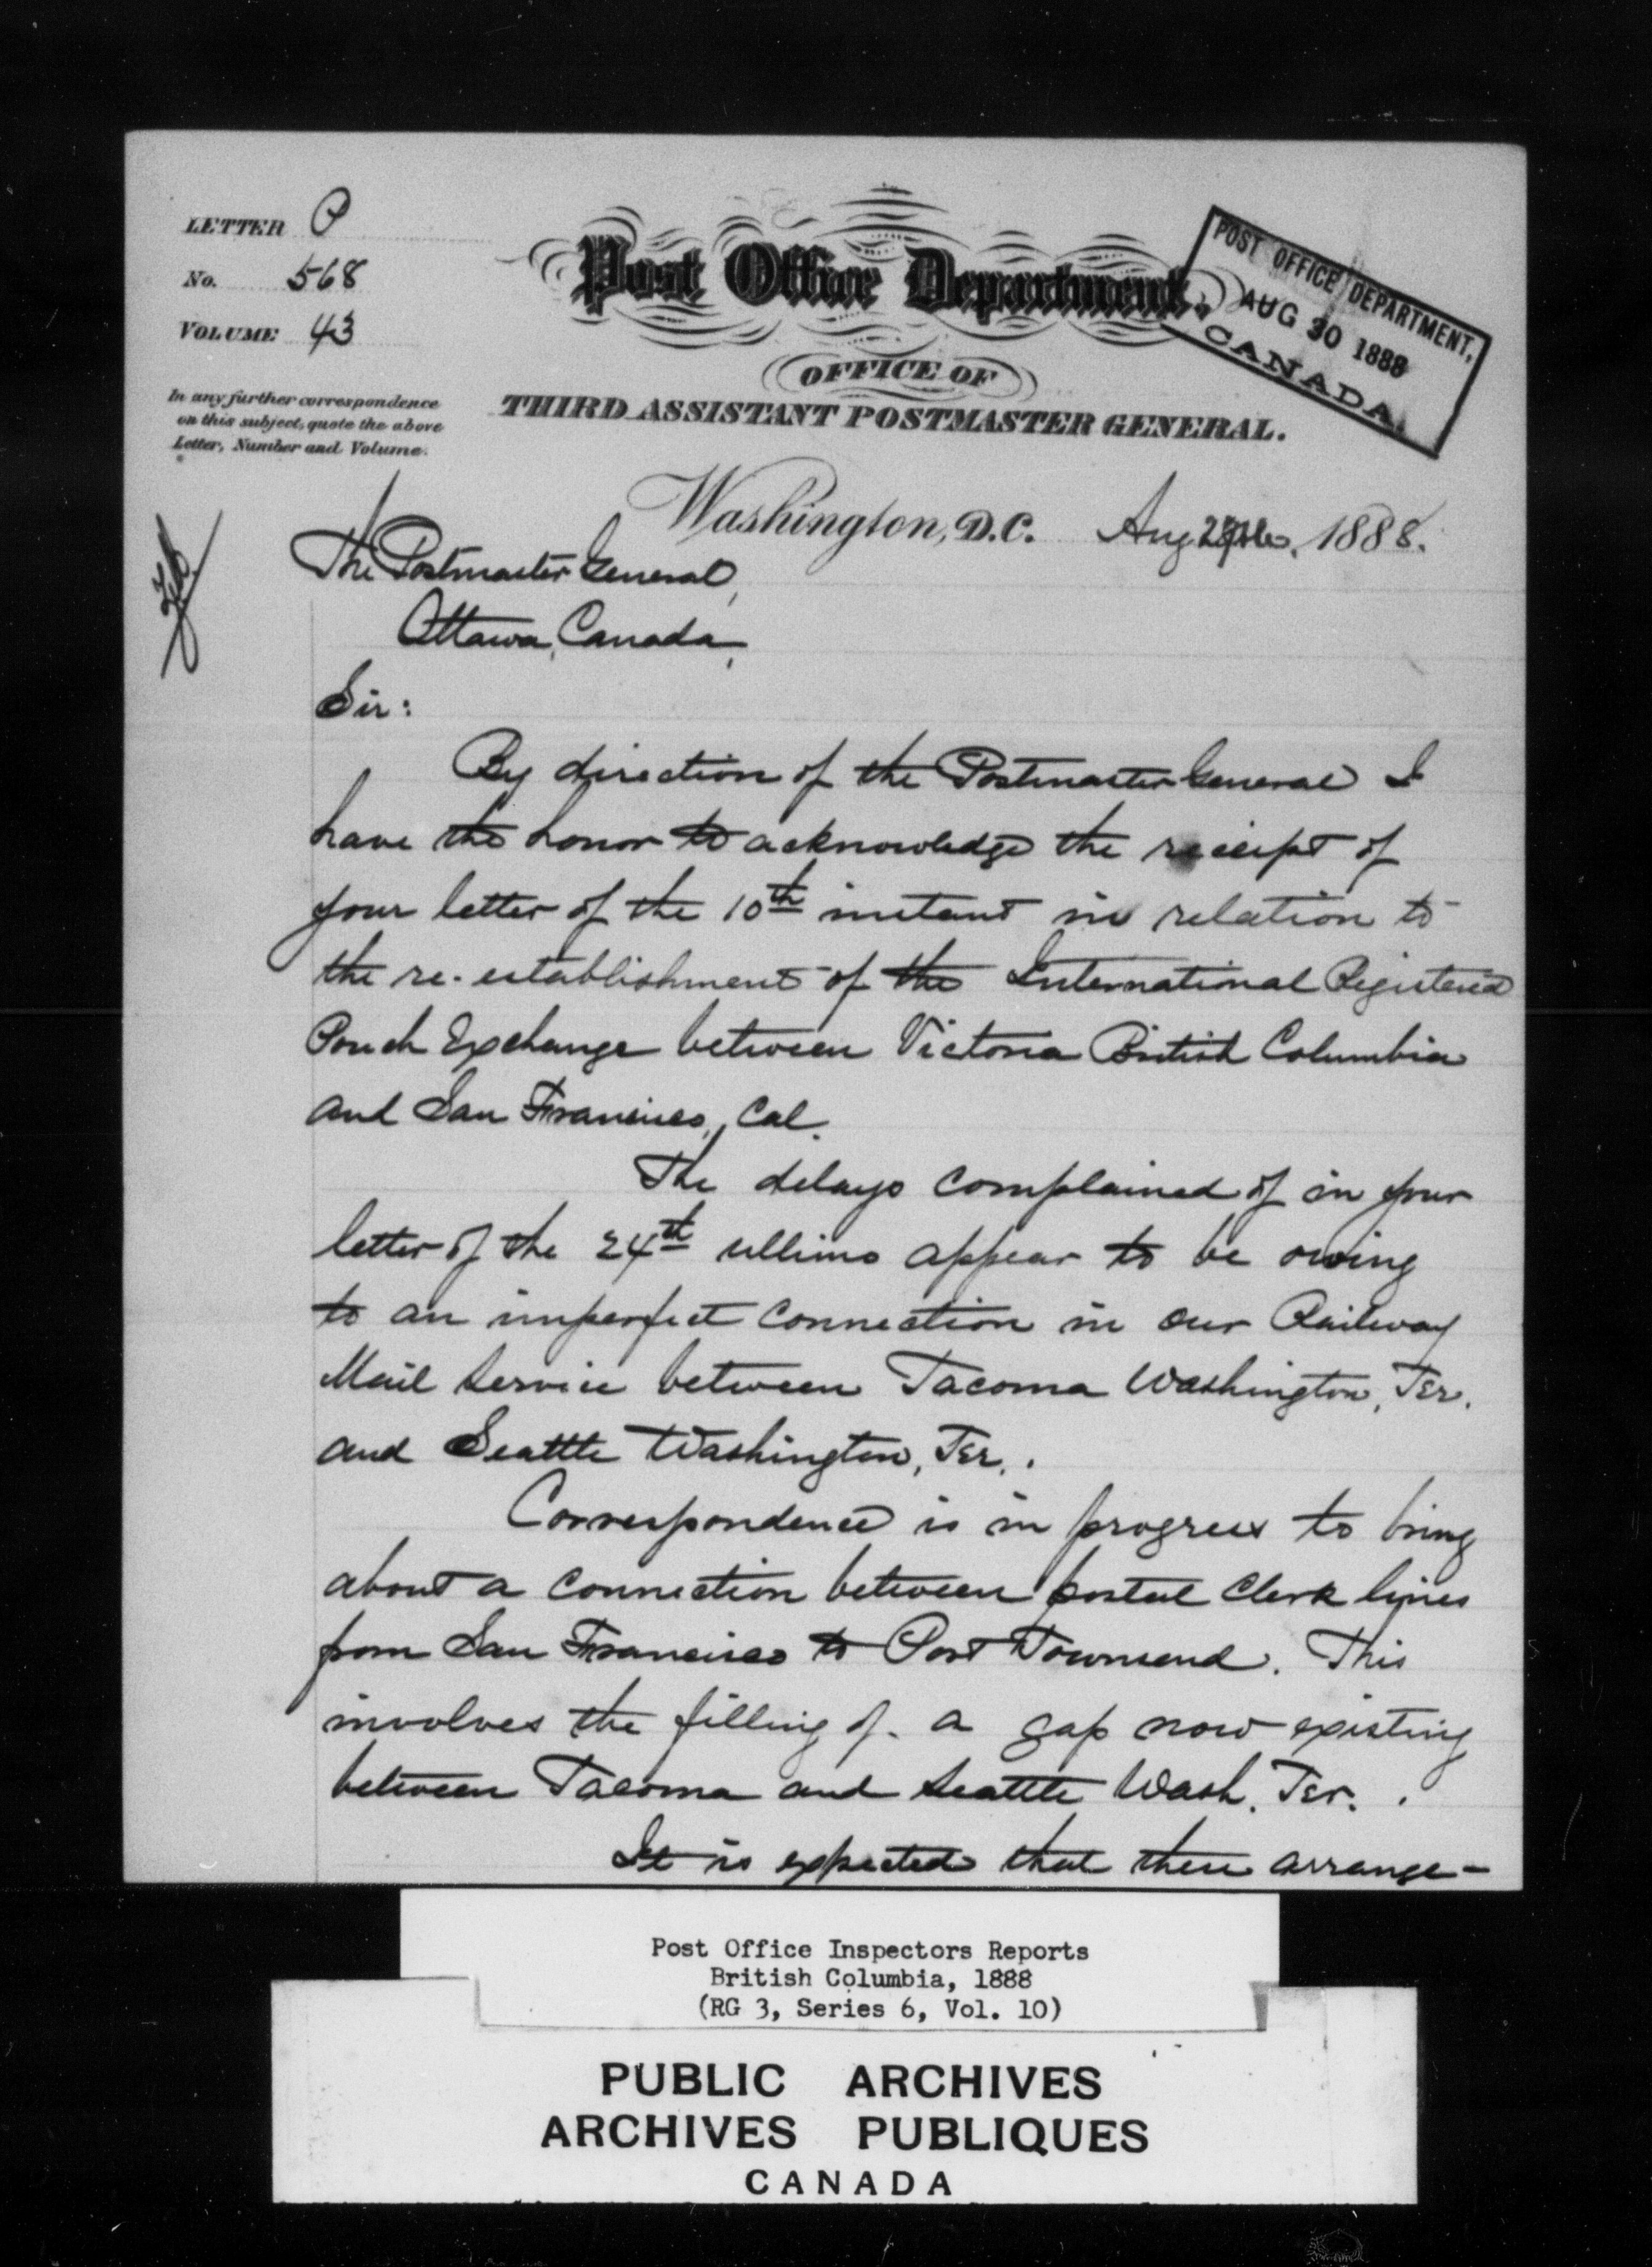 LETTER P
No. 568
VOLUME 43
In any further correspondence
on this subject, quote the above
Letter, Number and Volume.
Post Office Department,
OFFICE OF
THIRD ASSISTANT POSTMASTER GENERAL.
POST OFFICE DEPARTMENT,
AUG 30 1888
CANADA
Washington, D.C. Aug 1888.
The Postmaster General,
Ottawa, Canada,
Sir:
By direction of the Postmaster General I
have the honor to acknowledge the receipt of
your letter of the 10th instant in relation to
the re-establishment of the International Registered
Pouch Exchange between Victoria British Columbia
and San Francisco, Cal.
The delays complained of in your
letter of the 24th ultimo appear to be owing
to an imperfect connection in our Railway
Mail Service between Tacoma Washington, Ter.
and Seattle Washington, Ter..
Correspondence is in progress to bring
about a connection between postal clerk lines
from San Francisco to Port Townsend. This
involves the filling of a gap now existing
between Tacoma and Seattle Wash. Ter. .
It is expected that these arrange-
Post Office Inspectors Reports
British Columbia, 1888
(RG 3, Series 6, Vol. 10)
PUBLIC ARCHIVES
ARCHIVES PUBLIQUES
CANADA